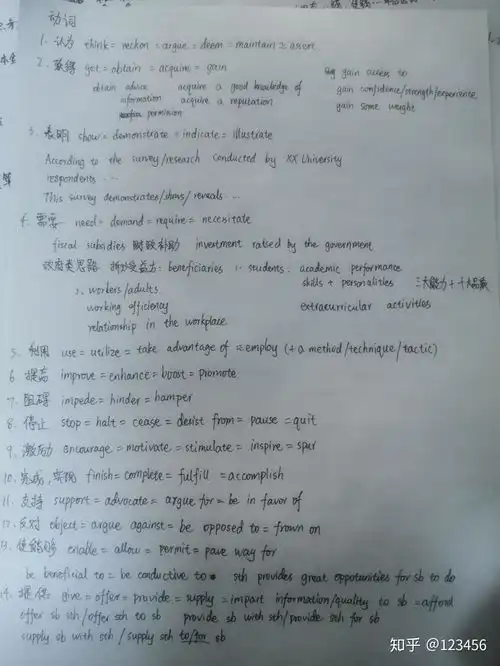 动词
1. 认为 think = reckon = argue = deem = maintain = assert
2. 获得 get = obtain = acquire = gain gain access to
obtain advice acquire a good knowledge of gain confidence/strength/experience
information acquire a reputation gain some weight
permission
3. 表明 show = demonstrate = indicate = illustrate
According to the survey/research conducted by XX University
respondents ...
This survey demonstrates/shows/reveals ...
4. 需要 need = demand = require = necessitate
fiscal subsidies 财政补助 investment raised by the government
政府类思路 beneficiaries 1. students: academic performance
skills + personalities 三大能力+十大品质
2. workers/adults extracurricular activities
working efficiency
relationship in the workplace
5. 利用 use = utilize = take advantage of = employ (+ a method/technique/tactic)
6. 提高 improve = enhance = boost = promote
7. 阻碍 impede = hinder = hamper
8. 停止 stop = halt = cease = desist from = pause = quit
9. 激励 encourage = motivate = stimulate = inspire = spur
10. 完成,实现 finish = complete = fulfill = accomplish
11. 支持 support = advocate = argue for = be in favor of
12. 反对 object = argue against = be opposed to = frown on
13. 使能够 enable = allow = permit = pave way for
be beneficial to = be conductive to sth provides great oppotunities for sb to do
14. 提供 give = offer = provide = supply = impart information/quality to sb = afford
offer sb sth/offer sth to sb provide sb with sth/provide sth for sb
supply sb with sth / supply sth to/for sb
知乎 @123456